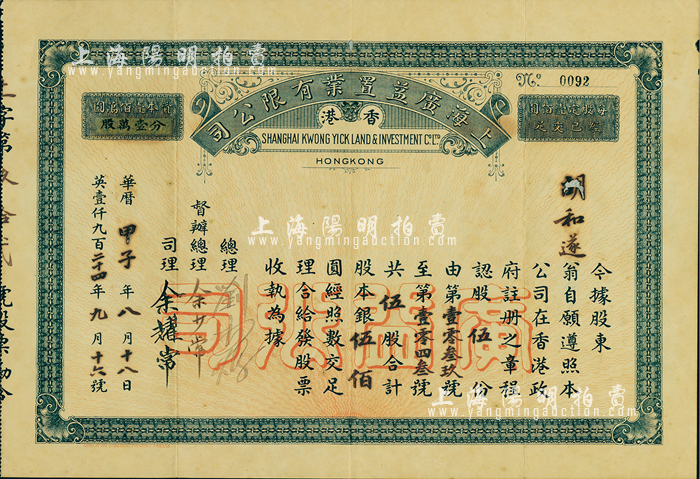 上海陽明拍賣
www.yangmingauction.com
Nº 0092
上海廣益置業有限公司
香港
SHANGHAI KWONG YICK LAND & INVESTMENT Cº Lᵀᴰ
HONGKONG
分壹萬股
今據股東
胡和遂
翁自願遵照本
公司在香港政
府註册之章程
認股伍份
由第壹零叁玖號
至第壹零四叁號
共伍股合計
股本銀伍佰
圓經照數交足
理合給發股票
收執為據
總理
督辦總理
司理余耀常
華曆甲子年八月十八日
英壹仟九百二十四年九月十六號
廣益公司
上海陽明拍賣
www.yangmingauction.com
上海陽明拍賣
www.yangmingauction.com
上海陽明拍賣
www.yangmingauction.com
上海陽明拍賣
www.yangmingauction.com